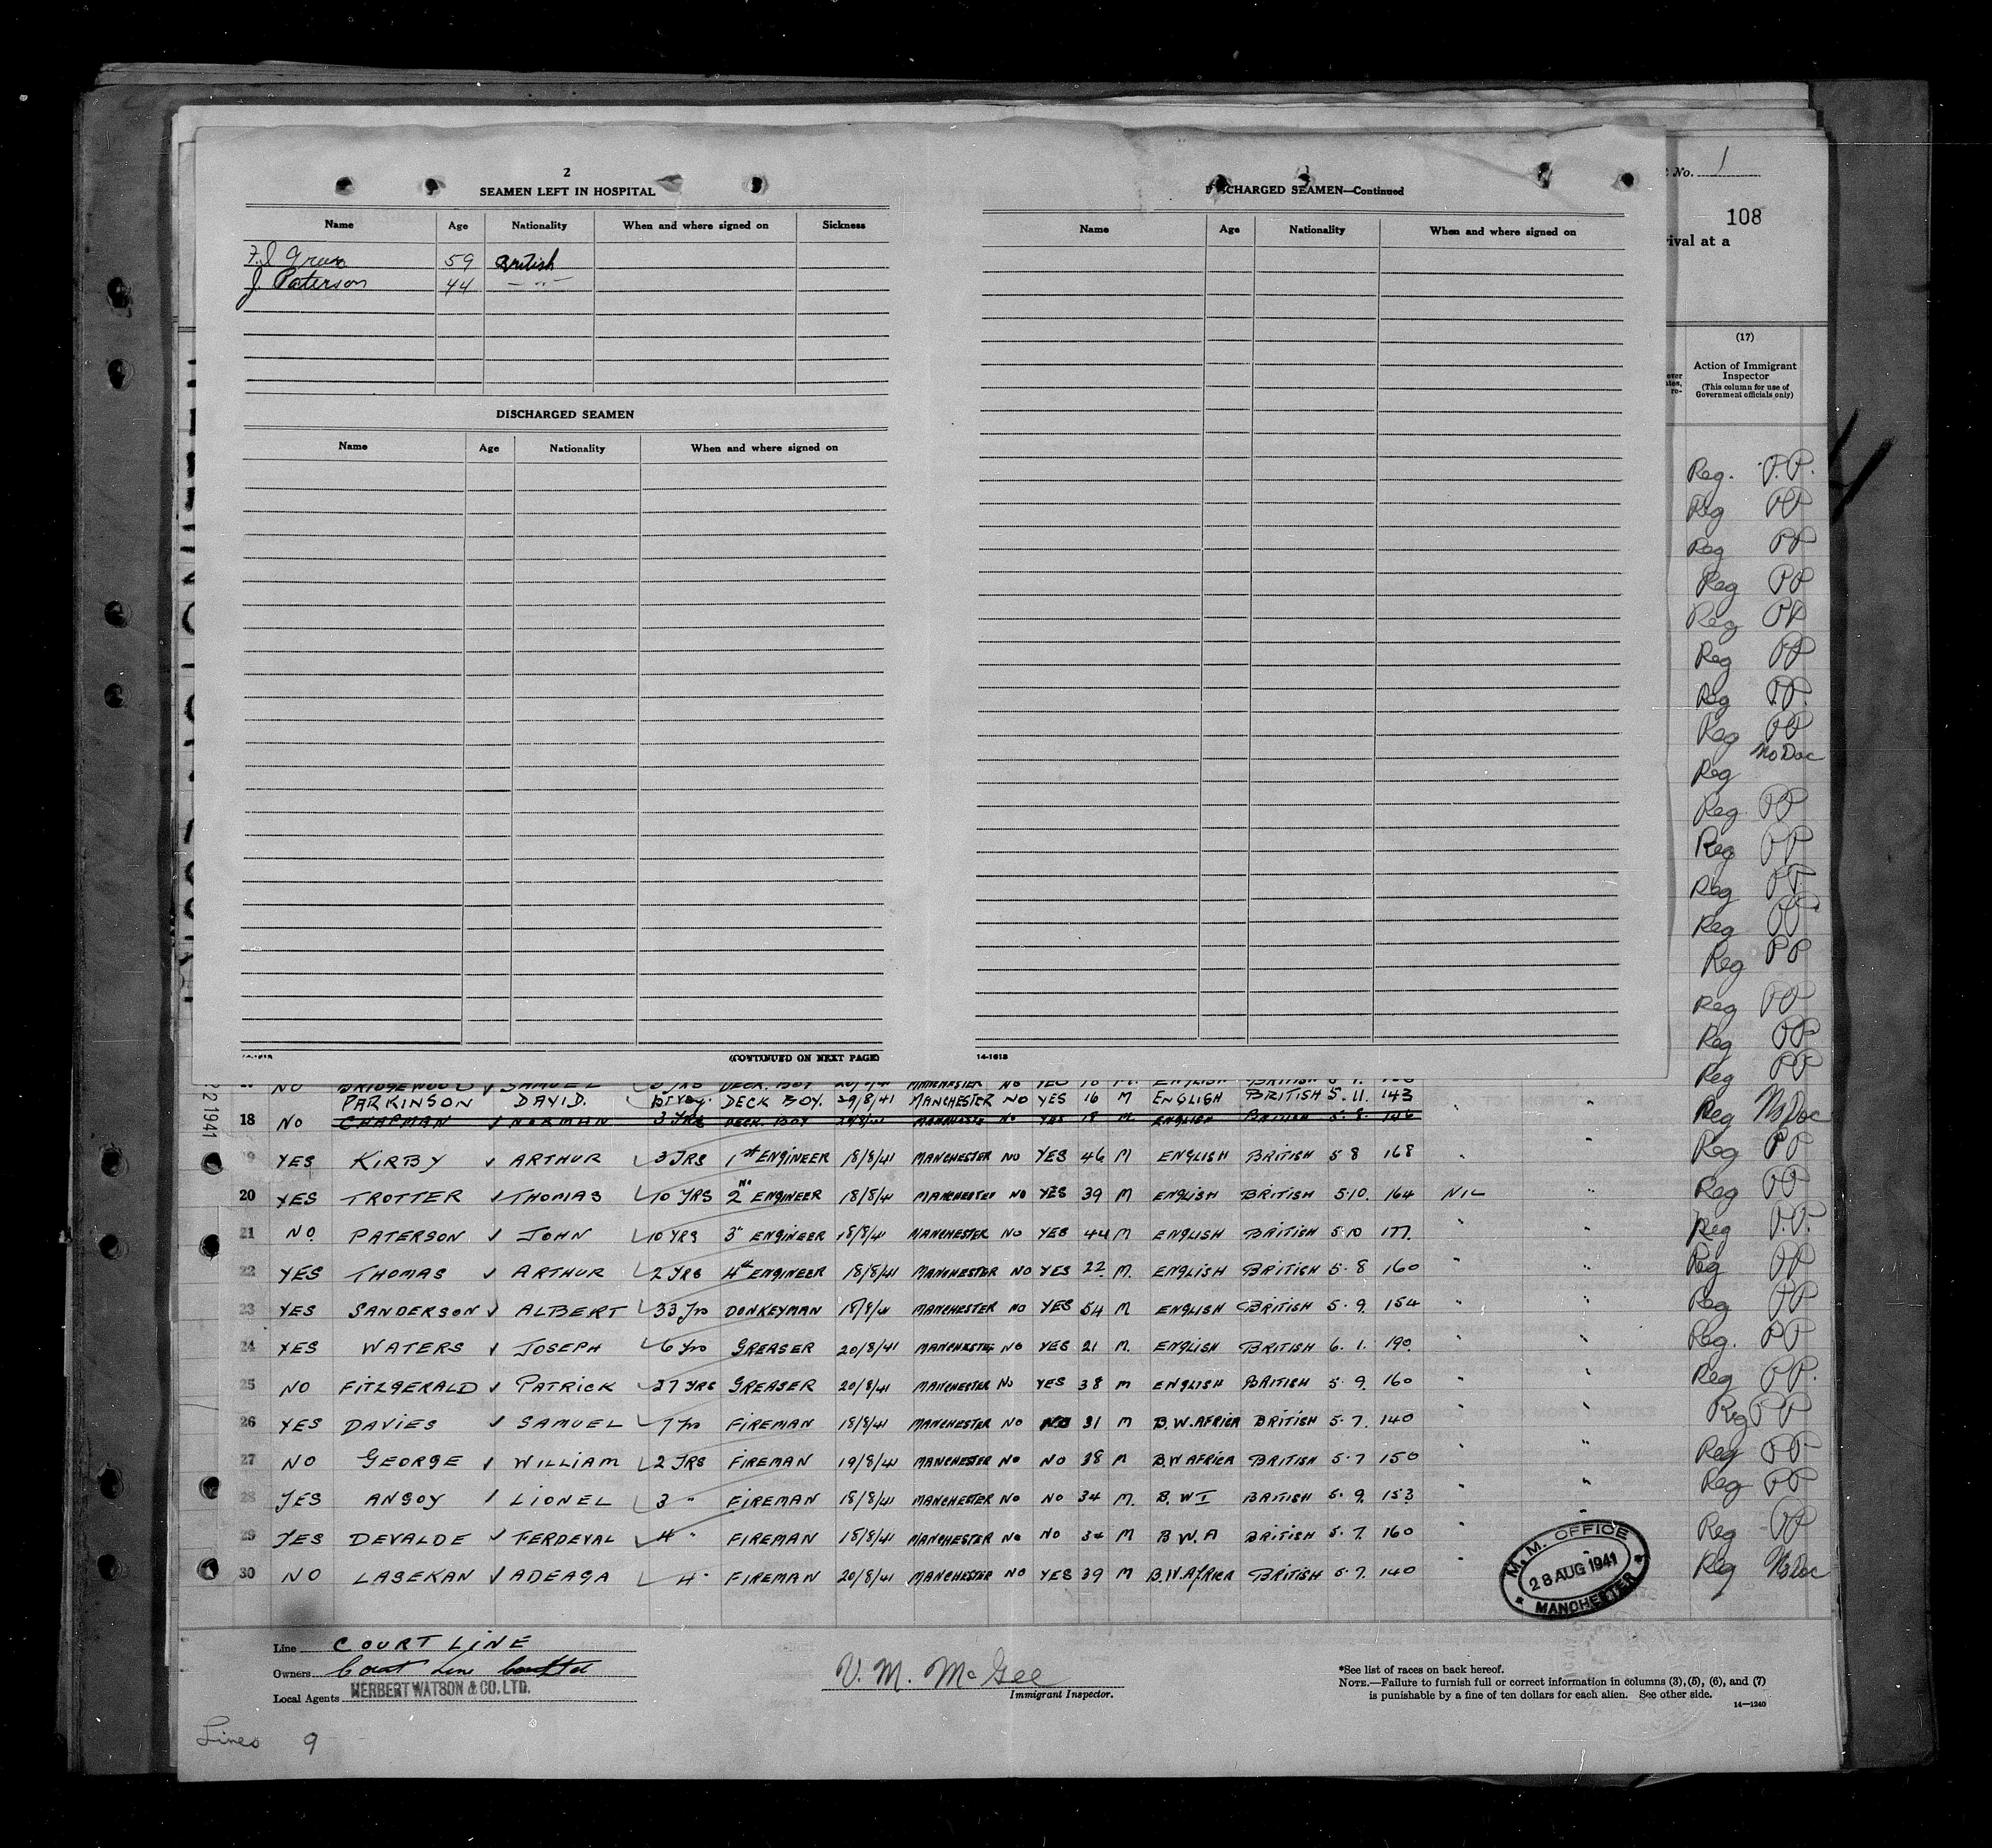 2
SEAMEN LEFT IN HOSPITAL
Name Age Nationality When and where signed on Sickness
59 British
J. Paterson 44 — " —
DISCHARGED SEAMEN
Name Age Nationality When and where signed on
(CONTINUED ON NEXT PAGE)
DISCHARGED SEAMEN—Continued
Name Age Nationality When and where signed on
14-1618
No. 1
108
ival at a
(17)
Action of Immigrant
Inspector
(This column for use of
Government officials only)
Reg. P.P.
Reg PP
Reg PP
Reg PP
Reg PP
Reg PP
Reg P.P.
Reg PP
Reg No Doc
Reg PP
Reg PP
Reg PP
Reg PP
Reg PP
Reg PP
Reg PP
Reg PP
NO BRIDGEWOOD ✓ SAMUEL DECK BOY MANCHESTER NO YES ENGLISH BRITISH
PARKINSON DAVID. DECK BOY. 29/8/41 MANCHESTER NO YES 16 M ENGLISH BRITISH 5.11. 143
18 NO CHAPMAN ✓ NORMAN 3 YRS DECK BOY MANCHESTER NO YES 18 M. ENGLISH BRITISH 5.8. 146 Reg No Doc
19 YES KIRBY ✓ ARTHUR 3 YRS 1st ENGINEER 18/8/41 MANCHESTER NO YES 46 M ENGLISH BRITISH 5 8 168 " " Reg PP
20 YES TROTTER ✓ THOMAS 10 YRS 2ND ENGINEER 18/8/41 MANCHESTER NO YES 39 M ENGLISH BRITISH 5.10. 164 NIL " Reg PP
21 NO PATERSON ✓ JOHN 10 YRS 3" ENGINEER 18/8/41 MANCHESTER NO YES 44 M ENGLISH BRITISH 5.10 177. " " Reg P.P.
22 YES THOMAS ✓ ARTHUR 2 YRS 4th ENGINEER 18/8/41 MANCHESTER NO YES 22 M. ENGLISH BRITISH 5.8 160 " " Reg PP
23 YES SANDERSON ✓ ALBERT 33 Yrs DONKEYMAN 18/8/41 MANCHESTER NO YES 54 M ENGLISH BRITISH 5.9. 154 " " Reg PP
24 YES WATERS ✓ JOSEPH 6 Yrs GREASER 20/8/41 MANCHESTER NO YES 21 M. ENGLISH BRITISH 6.1. 190. " " Reg. PP
25 NO FITZGERALD ✓ PATRICK YRS GREASER 20/8/41 MANCHESTER NO YES 38 M ENGLISH BRITISH 5.9. 160 " " Reg PP.
26 YES DAVIES ✓ SAMUEL 7 Yrs FIREMAN 18/8/41 MANCHESTER NO NO 31 M B.W.AFRICA BRITISH 5.7. 140 " " Reg PP
27 NO GEORGE ✓ WILLIAM 2 YRS FIREMAN 19/8/41 MANCHESTER NO NO 38 M B.W AFRICA BRITISH 5.7 150 " " Reg PP
28 YES ANGOY ✓ LIONEL 3 " FIREMAN 18/8/41 MANCHESTER NO NO 34 M. B. W I BRITISH 5.9. 153 " " Reg PP
29 YES DEVALDE ✓ FERDEVAL 4 " FIREMAN 18/8/41 MANCHESTER NO NO 34 M B W. A BRITISH 5.7. 160 " " Reg PP
30 NO LASEKAN ✓ ADEAGA 4 " FIREMAN 20/8/41 MANCHESTER NO YES 39 M B.W.AFRICA BRITISH 5.7. 140 " Reg No Doc
M. M. OFFICE
28 AUG 1941
MANCHESTER
Line COURT LINE
Owners Court Line
Local Agents HERBERT WATSON & CO. LTD.
V. M. McGee
Immigrant Inspector.
*See list of races on back hereof.
NOTE.—Failure to furnish full or correct information in columns (3), (5), (6), and (7)
is punishable by a fine of ten dollars for each alien. See other side.
14—1240
Lines 9